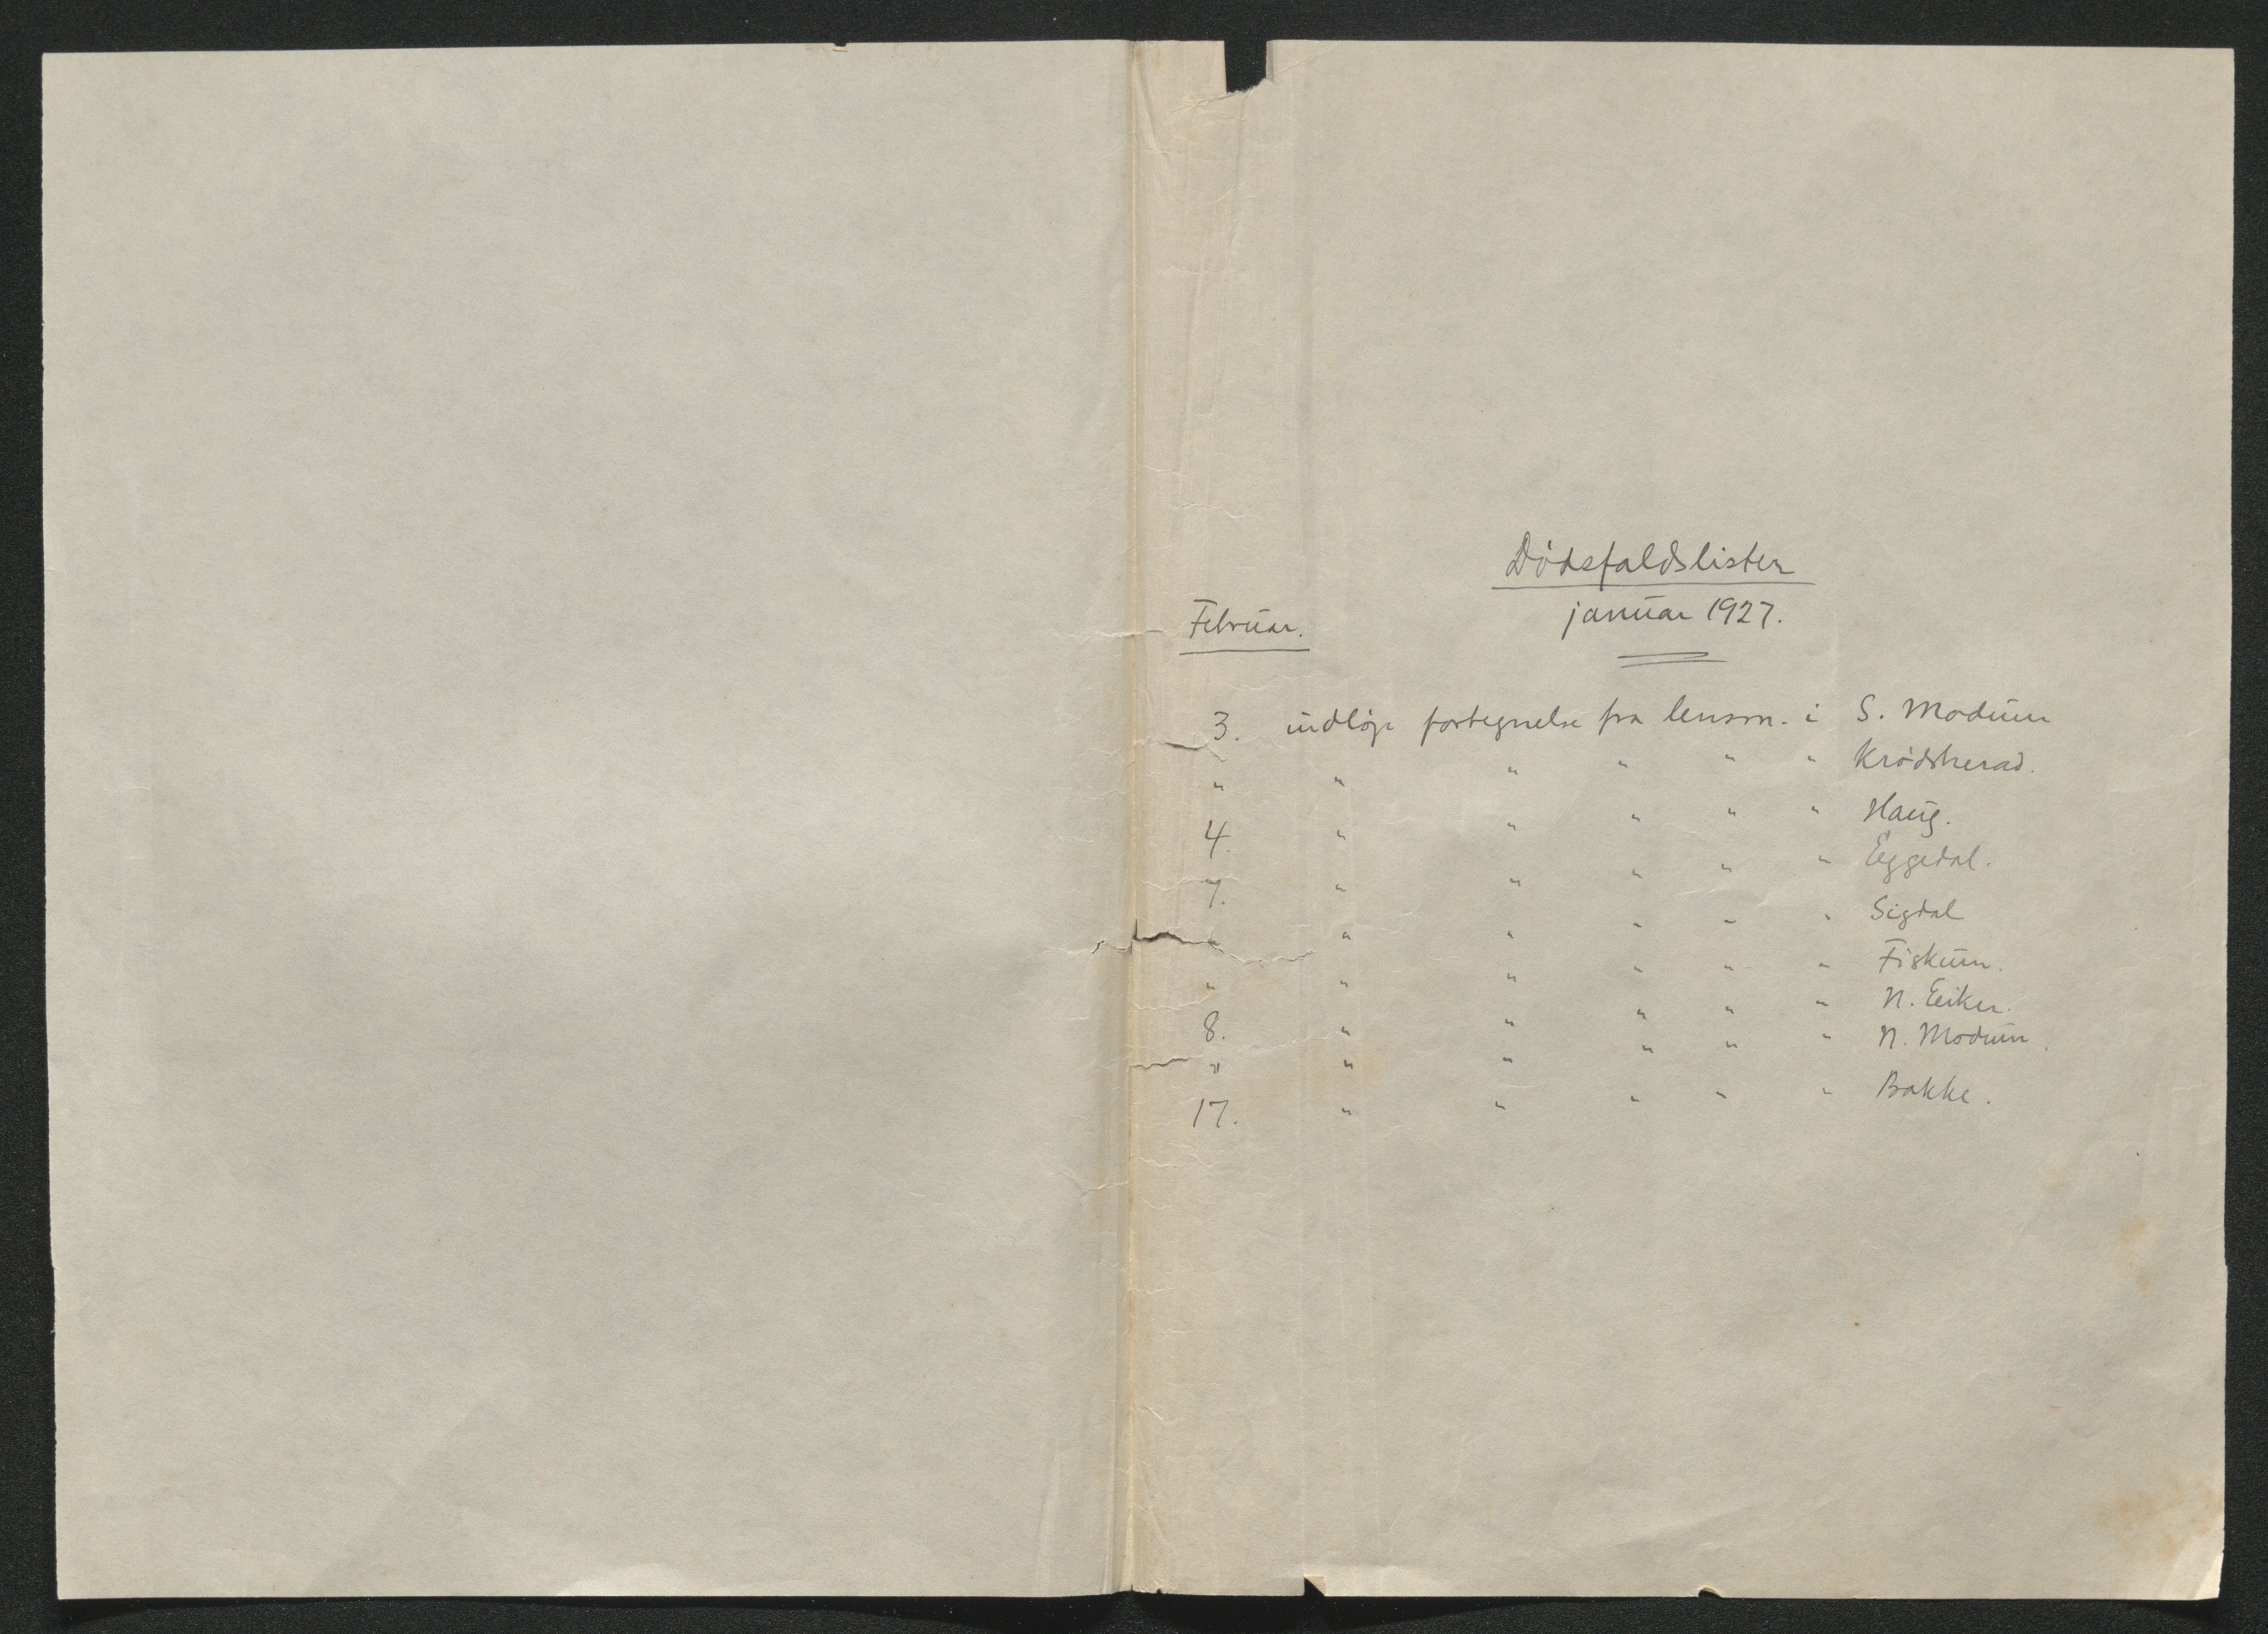 Dödsfaldslister
januar 1927.
Februar.
3. indløp fortegnelse fra lensm. i S. Modum
" " " " " " Krødsherad.
4. " " " " " Haug.
7. " " " " " Eggedal.
" " " " " " Sigdal
" " " " " " Fiskum.
8. " " " " " N. Eiker.
" " " " " " N. Modum.
17. " " " " " Bakke.